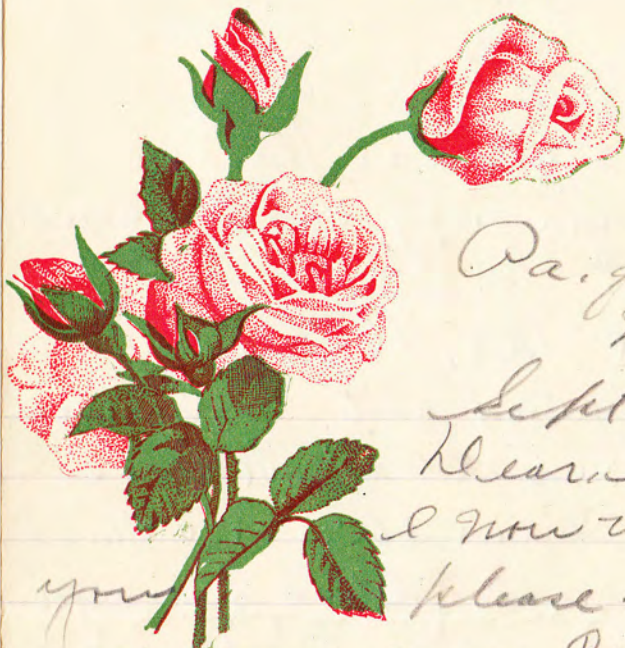 Pa.
Sept
Dear
I now
you please